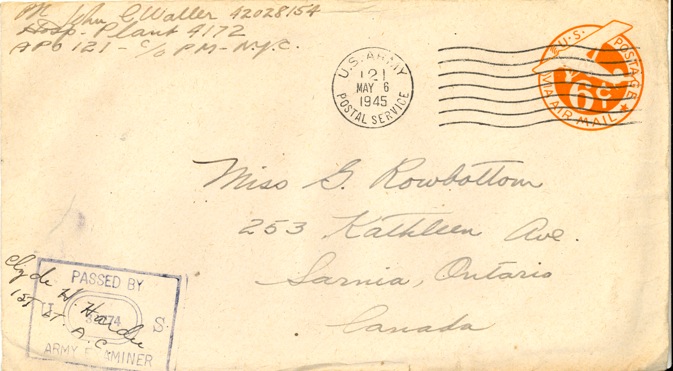 Pvt. John C Waller 42028154
Hosp. Plant 4172
APO 121 - c/o PM - N.Y.C.
U.S. ARMY
121
MAY 6
1945
POSTAL SERVICE
U.S. POSTAGE
6¢
VIA AIR MAIL
Miss G. Rowbottom
253 Kathleen Ave.
Sarnia, Ontario
Canada
PASSED BY
U. S.
ARMY EXAMINER
Clyde W.
1st LT. A.C.